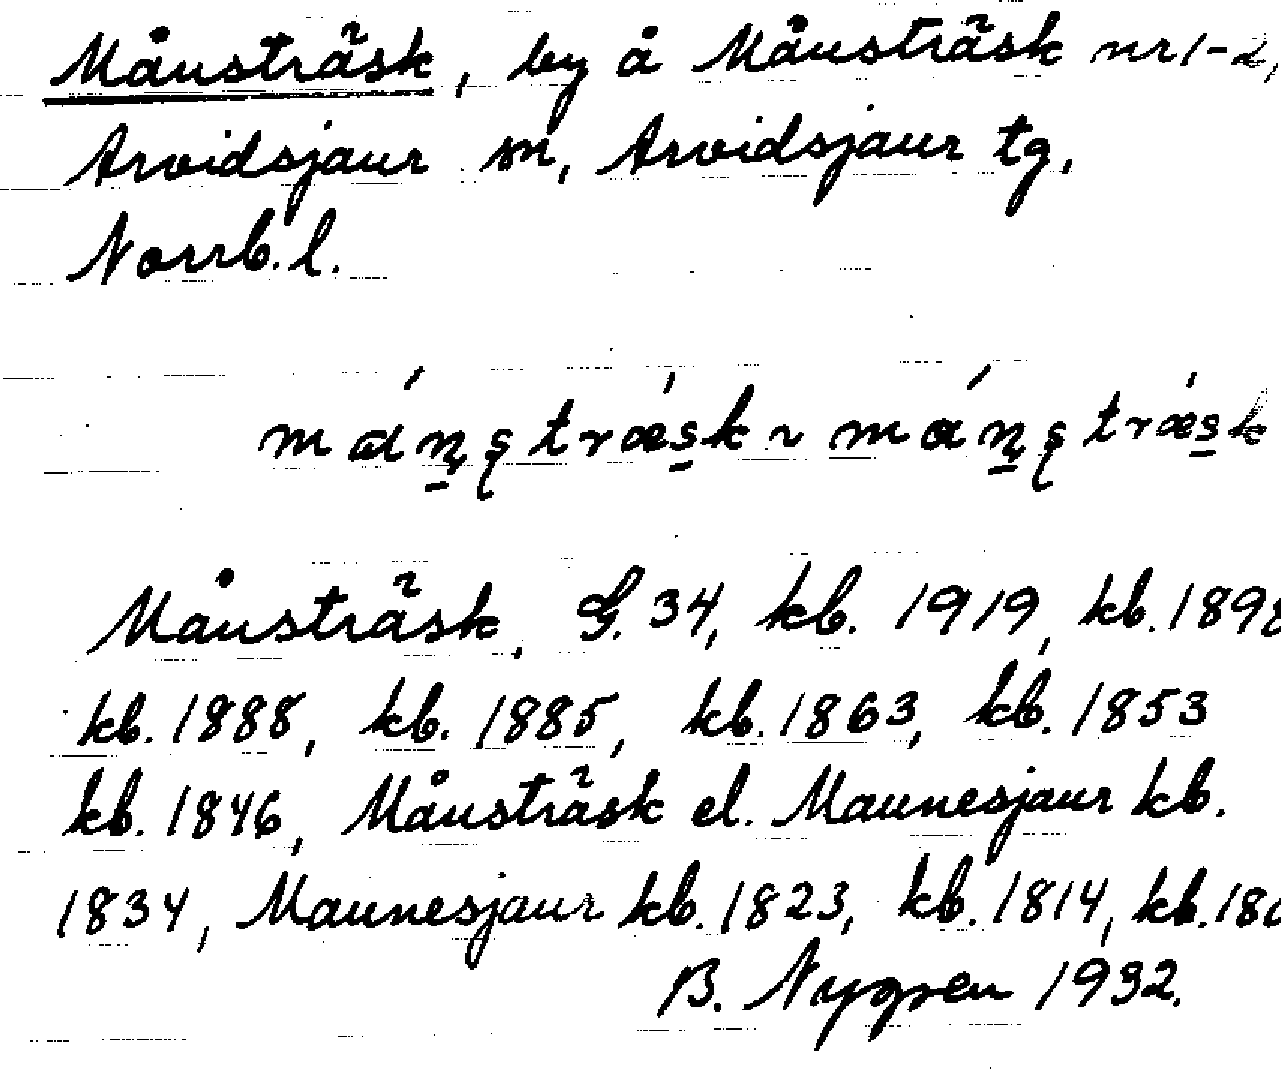 Månsträsk, by å Månsträsk nr 1-2,
Arvidsjaur sn, Arvidsjaur tg,
Norrb. l.
Månsträsk, G. 34, kb. 1919, kb. 1898
kb. 1888, kb. 1885, kb. 1863, kb. 1853
kb. 1846, Månsträsk el. Maunesjaur kb.
1834, Maunesjaur kb. 1823, kb. 1814, kb.
B. Nygren 1932.